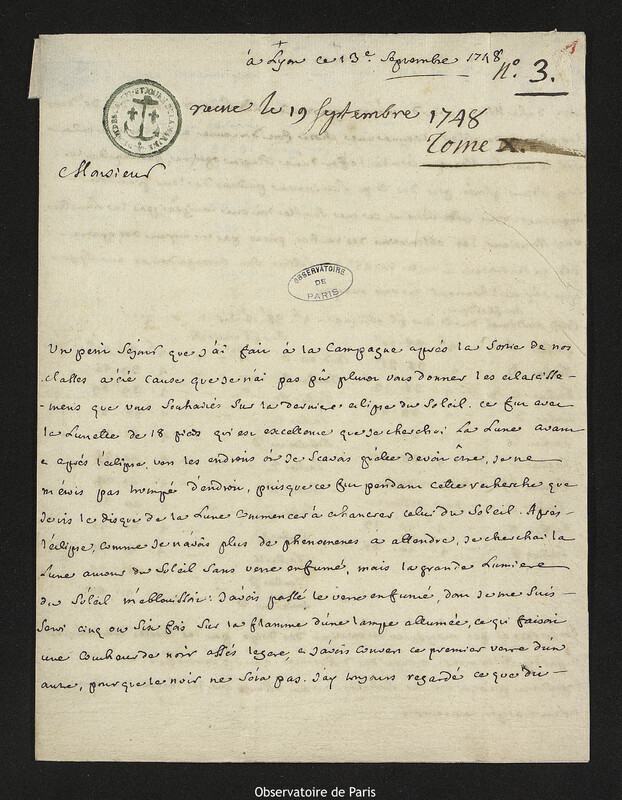 à Lyon ce 13e Septembre 1748
N.º 3.
recue le 19 Septembre 1748
Tome X.
Monsieur
OBSERVATOIRE
DE
PARIS.
Un petit Sejour que J'ai fait à la Campagne après la Sortie de nos
Classes a été cause que Je n'ai pas pû plutot vous donner les eclaircisse-
-mens que vous Souhaités Sur la derniere eclipse du Soleil. ce fut avec
la Lunette de 18 pieds qui est excellente que Je cherchai La Lune avant
& après l'eclipse, vers les endroits où Je Scavois qu'elle devoit être, Je ne
m'etois pas trompé d'endroit, puisque ce fut pendant cette recherche que
Je vis le disque de la Lune Commencer à echancrer celui du Soleil. Après
l'eclipse, comme Je n'avois plus de phenomenes à attendre, Je cherchai la
Lune autour du Soleil Sans verre enfumé, mais la grande Lumiere
du Soleil m'eblouissoit: J'avois passé le verre enfumé, dont Je me Suis
Servi cinq ou Six fois Sur la flamme d'une lampe allumée, ce qui faisoit
une Couche de noir assés legere, & J'avois couvert ce premier verre d'un
autre, pour que le noir ne S'ota pas. J'ay toujours regardé ce que di-
Observatoire de Paris